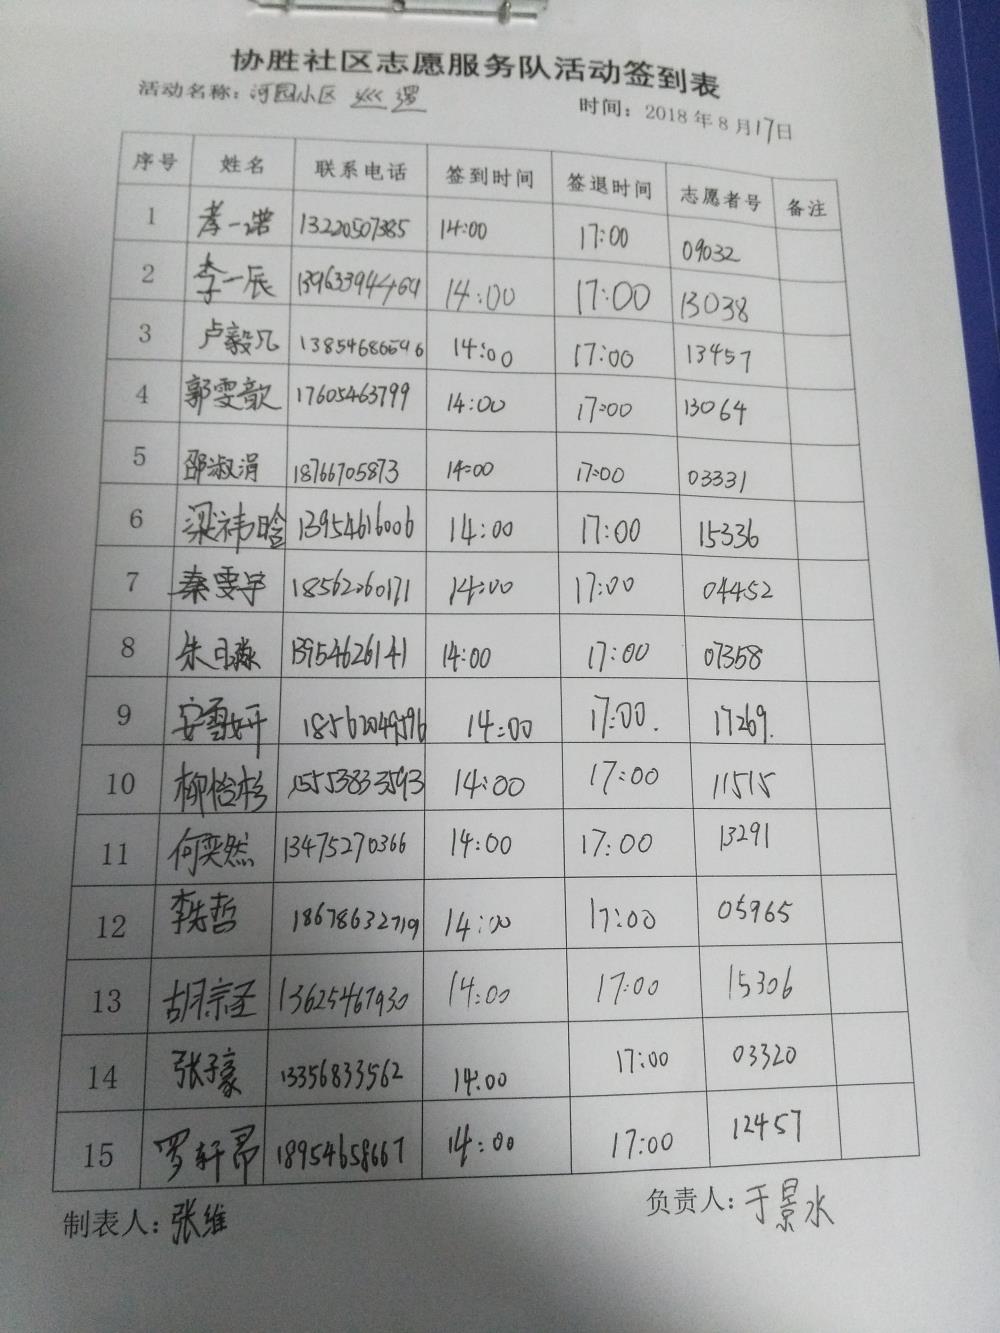 协胜社区志愿服务队活动签到表
活动名称：河园小区 巡逻
时间：2018年8月17日
序号 姓名 联系电话 签到时间 签退时间 志愿者号 备注
1 李一诺 13220507385 14:00 17:00 09032
2 李一辰 13963394469 14:00 17:00 13038
3 卢毅凡 13854686596 14:00 17:00 13457
4 郭雯歆 17605463799 14:00 17:00 13064
5 邵淑涓 18766705873 14:00 17:00 03331
6 梁祎晗 13954616006 14:00 17:00 15336
7 秦雯宇 18562260171 14:00 17:00 04452
8 朱曰淼 13954626141 14:00 17:00 07358
9 安雪妍 18562049596 14:00 17:00. 17269.
10 柳怡杉 15553833593 14:00 17:00 11515
11 何奕然 13475270366 14:00 17:00 13291
12 李哲 18678632719 14:00 17:00 05965
13 胡宗圣 13625467930 14:00 17:00 15306
14 张子豪 13356833562 14:00 17:00 03320
15 罗轩昂 18954658667 14:00 17:00 12457
制表人：张维
负责人：于景水